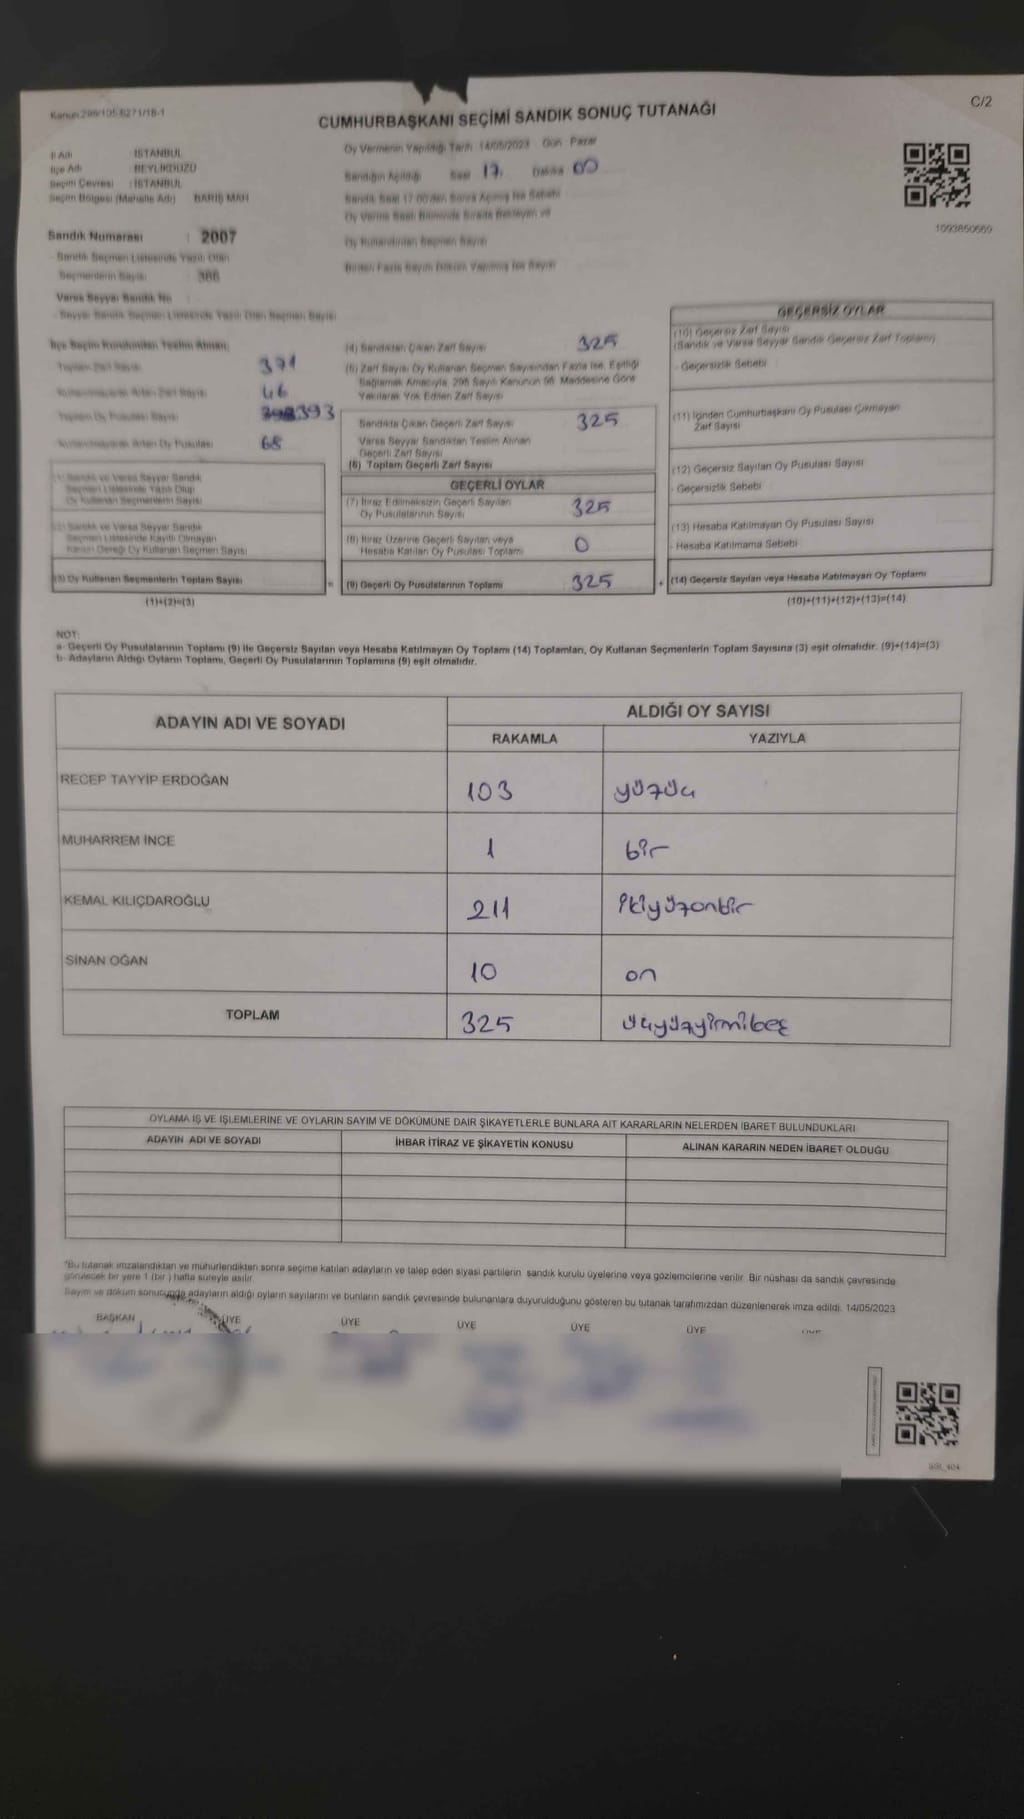 Kanun:298/105-6271/18-1
C/2
CUMHURBAŞKANI SEÇİMİ SANDIK SONUÇ TUTANAĞI
İl Adı : İSTANBUL
İlçe Adı : BEYLİKDÜZÜ
Seçim Çevresi : İSTANBUL
Seçim Bölgesi (Mahalle Adı) BARIŞ MAH
Sandık Numarası : 2007
Sandık Seçmen Listesinde Yazılı Olan
Seçmenlerin Sayısı : 386
Varsa Seyyar Sandık No
- Seyyar Sandık Seçmen Listesinde Yazılı Olan Seçmen Sayısı
Oy Vermenin Yapıldığı Tarih 14/05/2023 Gün Pazar
Sandığın Açıldığı Saat 17 Dakika 00
Sandık Saat 17.00'den Sonra Açılmış İse Sebebi
Oy Verme Saati Bitiminde Sırada Bekleyen ve
Oy Kullandırılan Seçmen Sayısı
Birden Fazla Sayım Döküm Yapılmış İse Sayısı
1093850669
İlçe Seçim Kurulundan Teslim Alınan;
Toplam Zarf Sayısı 371
Kullanılmayarak Artan Zarf Sayısı 46
Toplam Oy Pusulası Sayısı 393
Kullanılmayarak Artan Oy Pusulası 68
(1) Sandık ve Varsa Seyyar Sandık
Seçmen Listesinde Yazılı Olup
Oy Kullanan Seçmenlerin Sayısı
(2) Sandık ve Varsa Seyyar Sandık
Seçmen Listesinde Kayıtlı Olmayan
Kanun Gereği Oy Kullanan Seçmen Sayısı
(3) Oy Kullanan Seçmenlerin Toplam Sayısı
(1)+(2)=(3)
(4) Sandıktan Çıkan Zarf Sayısı 325
(5) Zarf Sayısı Oy Kullanan Seçmen Sayısından Fazla İse, Eşitliği
Sağlamak Amacıyla, 298 Sayılı Kanunun 98. Maddesine Göre
Yakılarak Yok Edilen Zarf Sayısı
Sandıkta Çıkan Geçerli Zarf Sayısı 325
Varsa Seyyar Sandıktan Teslim Alınan
Geçerli Zarf Sayısı
(6) Toplam Geçerli Zarf Sayısı
GEÇERLİ OYLAR
(7) İtiraz Edilmeksizin Geçerli Sayılan
Oy Pusulalarının Sayısı 325
(8) İtiraz Üzerine Geçerli Sayılan veya
Hesaba Katılan Oy Pusulası Toplamı 0
= (9) Geçerli Oy Pusulalarının Toplamı 325
GEÇERSİZ OYLAR
(10) Geçersiz Zarf Sayısı
(Sandık ve Varsa Seyyar Sandık Geçersiz Zarf Toplamı)
- Geçersizlik Sebebi
(11) İçinden Cumhurbaşkanı Oy Pusulası Çıkmayan
Zarf Sayısı
(12) Geçersiz Sayılan Oy Pusulası Sayısı
- Geçersizlik Sebebi
(13) Hesaba Katılmayan Oy Pusulası Sayısı
- Hesaba Katılmama Sebebi
+ (14) Geçersiz Sayılan veya Hesaba Katılmayan Oy Toplamı
(10)+(11)+(12)+(13)=(14)
NOT:
a- Geçerli Oy Pusulalarının Toplamı (9) ile Geçersiz Sayılan veya Hesaba Katılmayan Oy Toplamı (14) Toplamları, Oy Kullanan Seçmenlerin Toplam Sayısına (3) eşit olmalıdır. (9)+(14)=(3)
b- Adayların Aldığı Oyların Toplamı, Geçerli Oy Pusulalarının Toplamına (9) eşit olmalıdır.
ADAYIN ADI VE SOYADI
ALDIĞI OY SAYISI
RAKAMLA YAZIYLA
RECEP TAYYİP ERDOĞAN 103 yüzüç
MUHARREM İNCE 1 bir
KEMAL KILIÇDAROĞLU 211 ikiyüzonbir
SİNAN OĞAN 10 on
TOPLAM 325 üçyüzyirmibeş
OYLAMA İŞ VE İŞLEMLERİNE VE OYLARIN SAYIM VE DÖKÜMÜNE DAİR ŞİKAYETLERLE BUNLARA AİT KARARLARIN NELERDEN İBARET BULUNDUKLARI
ADAYIN ADI VE SOYADI İHBAR İTİRAZ VE ŞİKAYETİN KONUSU ALINAN KARARIN NEDEN İBARET OLDUĞU
*Bu tutanak imzalandıktan ve mühürlendikten sonra seçime katılan adayların ve talep eden siyasi partilerin sandık kurulu üyelerine veya gözlemcilerine verilir. Bir nüshası da sandık çevresinde
görülecek bir yere 1 (bir ) hafta süreyle asılır.
Sayım ve döküm sonucunda adayların aldığı oyların sayılarını ve bunların sandık çevresinde bulunanlara duyurulduğunu gösteren bu tutanak tarafımızdan düzenlenerek imza edildi. 14/05/2023
BAŞKAN ÜYE ÜYE ÜYE ÜYE ÜYE